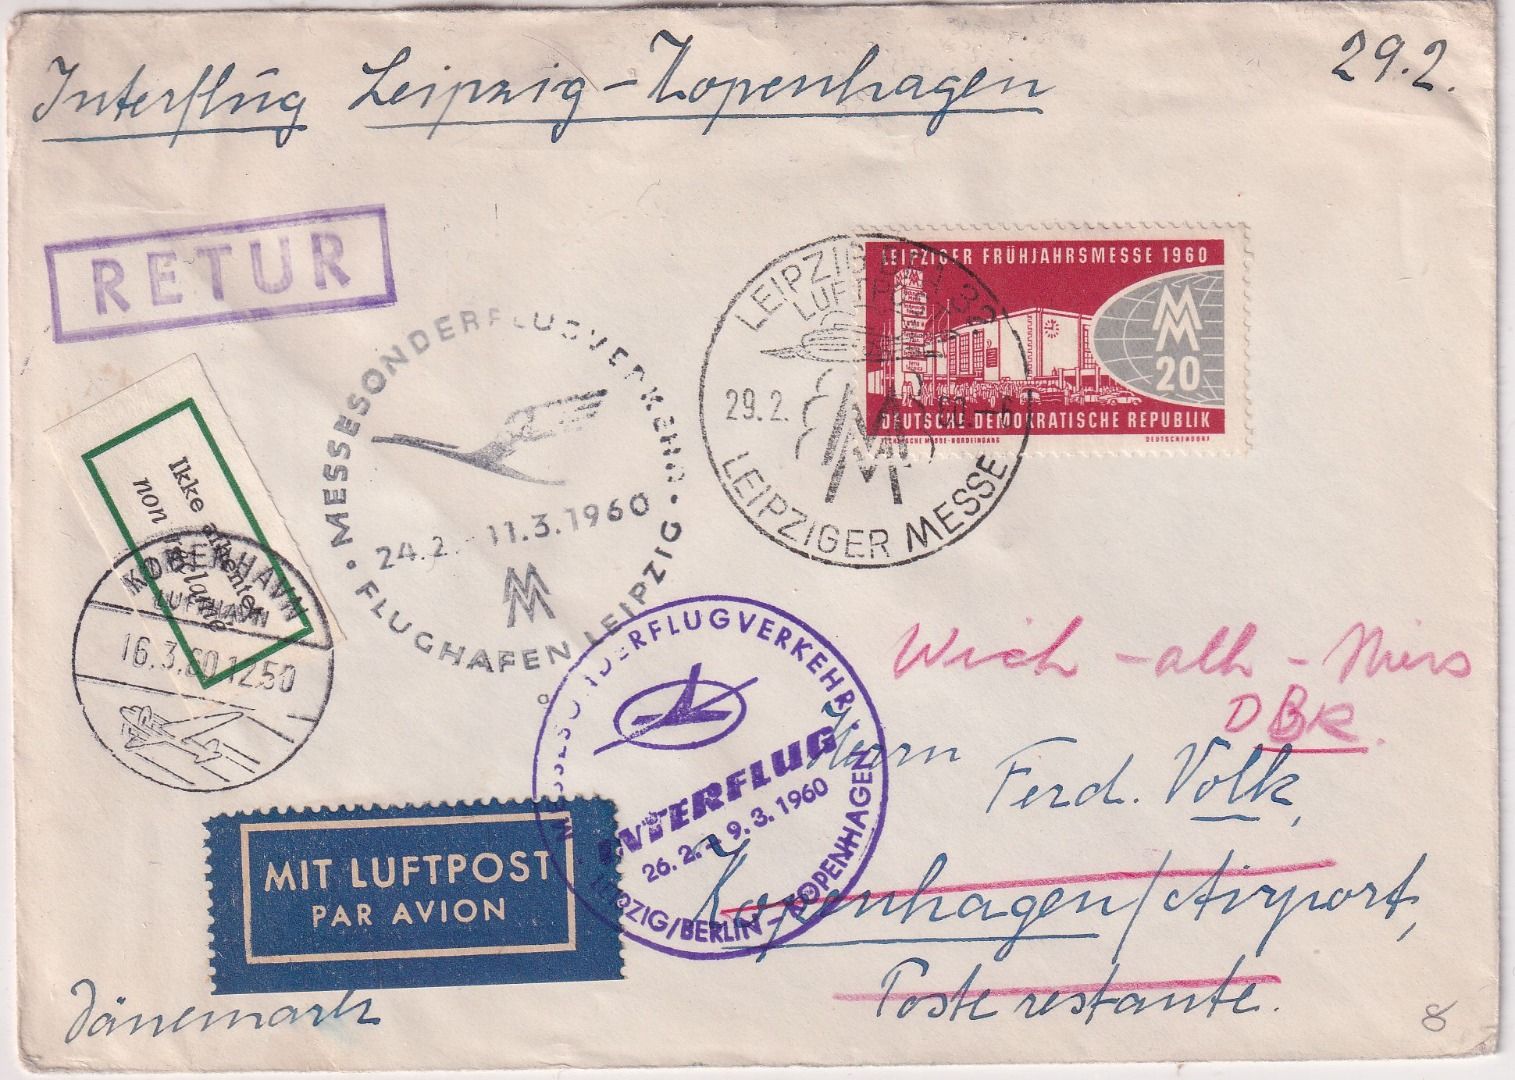 Interflug Leipzig-Kopenhagen
29.2.
RETUR
LEIPZIGER FRÜHJAHRSMESSE 1960
MM
20
DEUTSCHE DEMOKRATISCHE REPUBLIK
DEUTSCHENDORF
LEIPZIG
LUFTPOST
29.2.60-6
MM
LEIPZIGER MESSE
MESSESONDERFLUGVERKEHR
24.2.-11.3.1960
MM
FLUGHAFEN LEIPZIG
Ikke afhentet
non réclamé
KØBENHAVN
LUFTHAVN
16.3.60 12.50
MESSESONDERFLUGVERKEHR
INTERFLUG
26.2.-9.3.1960
LEIPZIG/BERLIN-KOPENHAGEN
DBR.
Herrn
Ferd. Volk,
Kopenhagen/Airport,
Poste restante.
MIT LUFTPOST
PAR AVION
Dänemark
8